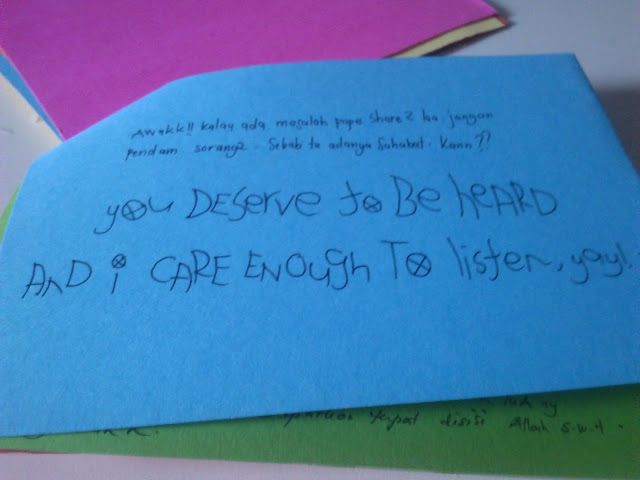 Awakk!! kalau ada masalah pape share2 laa. jangan
pendam sorang2. Sebab tu adanya Sahabat. Kann??
you DEServe to Be heARD
AnD i CARE ENOugh To listen, yay!
disisi Allah s.w.t.